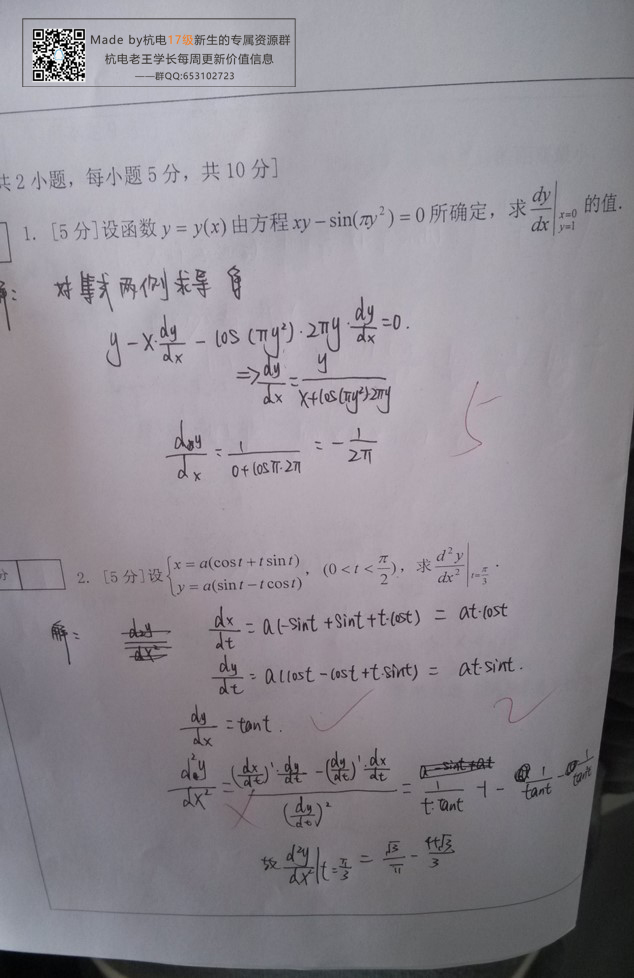 Made by杭电17级新生的专属资源群
杭电老王学长每周更新价值信息
——群QQ:653102723
共2小题，每小题5分，共10分]
1. [5分]设函数 y = y(x) 由方程 xy − sin(πy²) = 0 所确定，求 dy/dx |x=0 y=1 的值.
解： 对等式两侧求导
y − x·dy/dx − cos(πy²)·2πy·dy/dx = 0.
⇒ dy/dx = y/(x+cos(πy²)·2πy)
dy/dx = 1/(0+cosπ·2π) = −1/2π
5
分
2. [5分]设 { x = a(cos t + t sin t) y = a(sin t − t cos t) ， (0 < t < π/2)，求 d²y/dx² |t=π/3 .
解： dx/dt = a(−sint + sint + t·cost) = at·cost
dy/dt = a(cost − cost + t·sint) = at·sint.
dy/dx = tant.
2
d²y/dx² = ((dx/dt)'·dy/dt − (dy/dt)'·dx/dt)/(dy/dt)² = 1/(t·tant) − 1 − 1/tant − 1/tant
故 d²y/dx² | t=π/3 = √3/π − (4+√3)/3